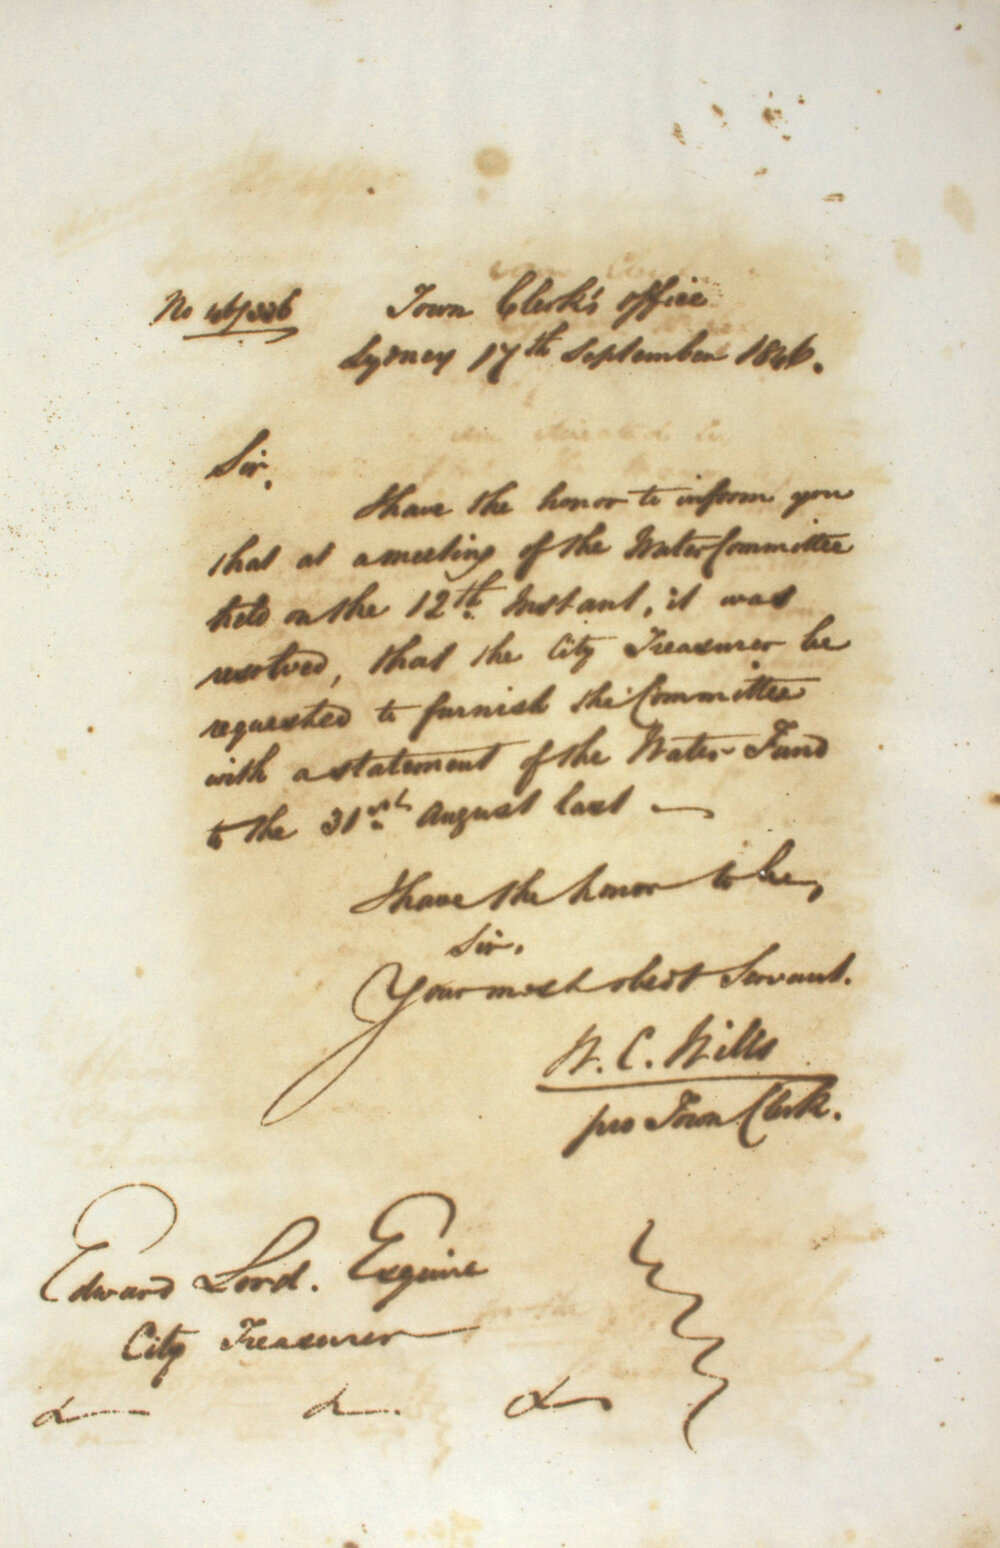 No 46/326 Town Clerk's office
Sydney 17th September 1846.
Sir,
I have the honor to inform you
that at a meeting of the Water Committee
held on the 12th Instant, it was
resolved, that the City Treasurer be
requested to furnish the Committee
with a statement of the Water Fund
to the 31st August last —
I have the honor to be,
Sir,
Your most obedt Servant.
W. C. Wills
pro Town Clerk.
Edward Lord. Esquire
City Treasurer
&— &—. &—